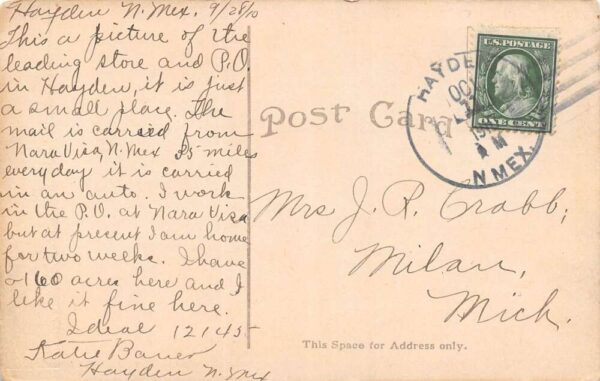 Hayden N. Mex. 9/28/10
This a picture of the
leading store and P.O.
in Hayden, it is just
a small place. The
mail is carried from
Nara Visa, N. Mex 25 miles
everyday it is carried
in an auto. I work
in the P.O. at Nara Visa
but at present I am home
for two weeks. I have
160 acres here and I
like it fine here.
Ideal 12145
Katie Bauer
Hayden N. Mex
Post Card
U.S. POSTAGE
ONE CENT
HAYDE
OC
M
N MEX.
Mrs J. R. Crabb,
Milan,
Mich.
This Space for Address only.